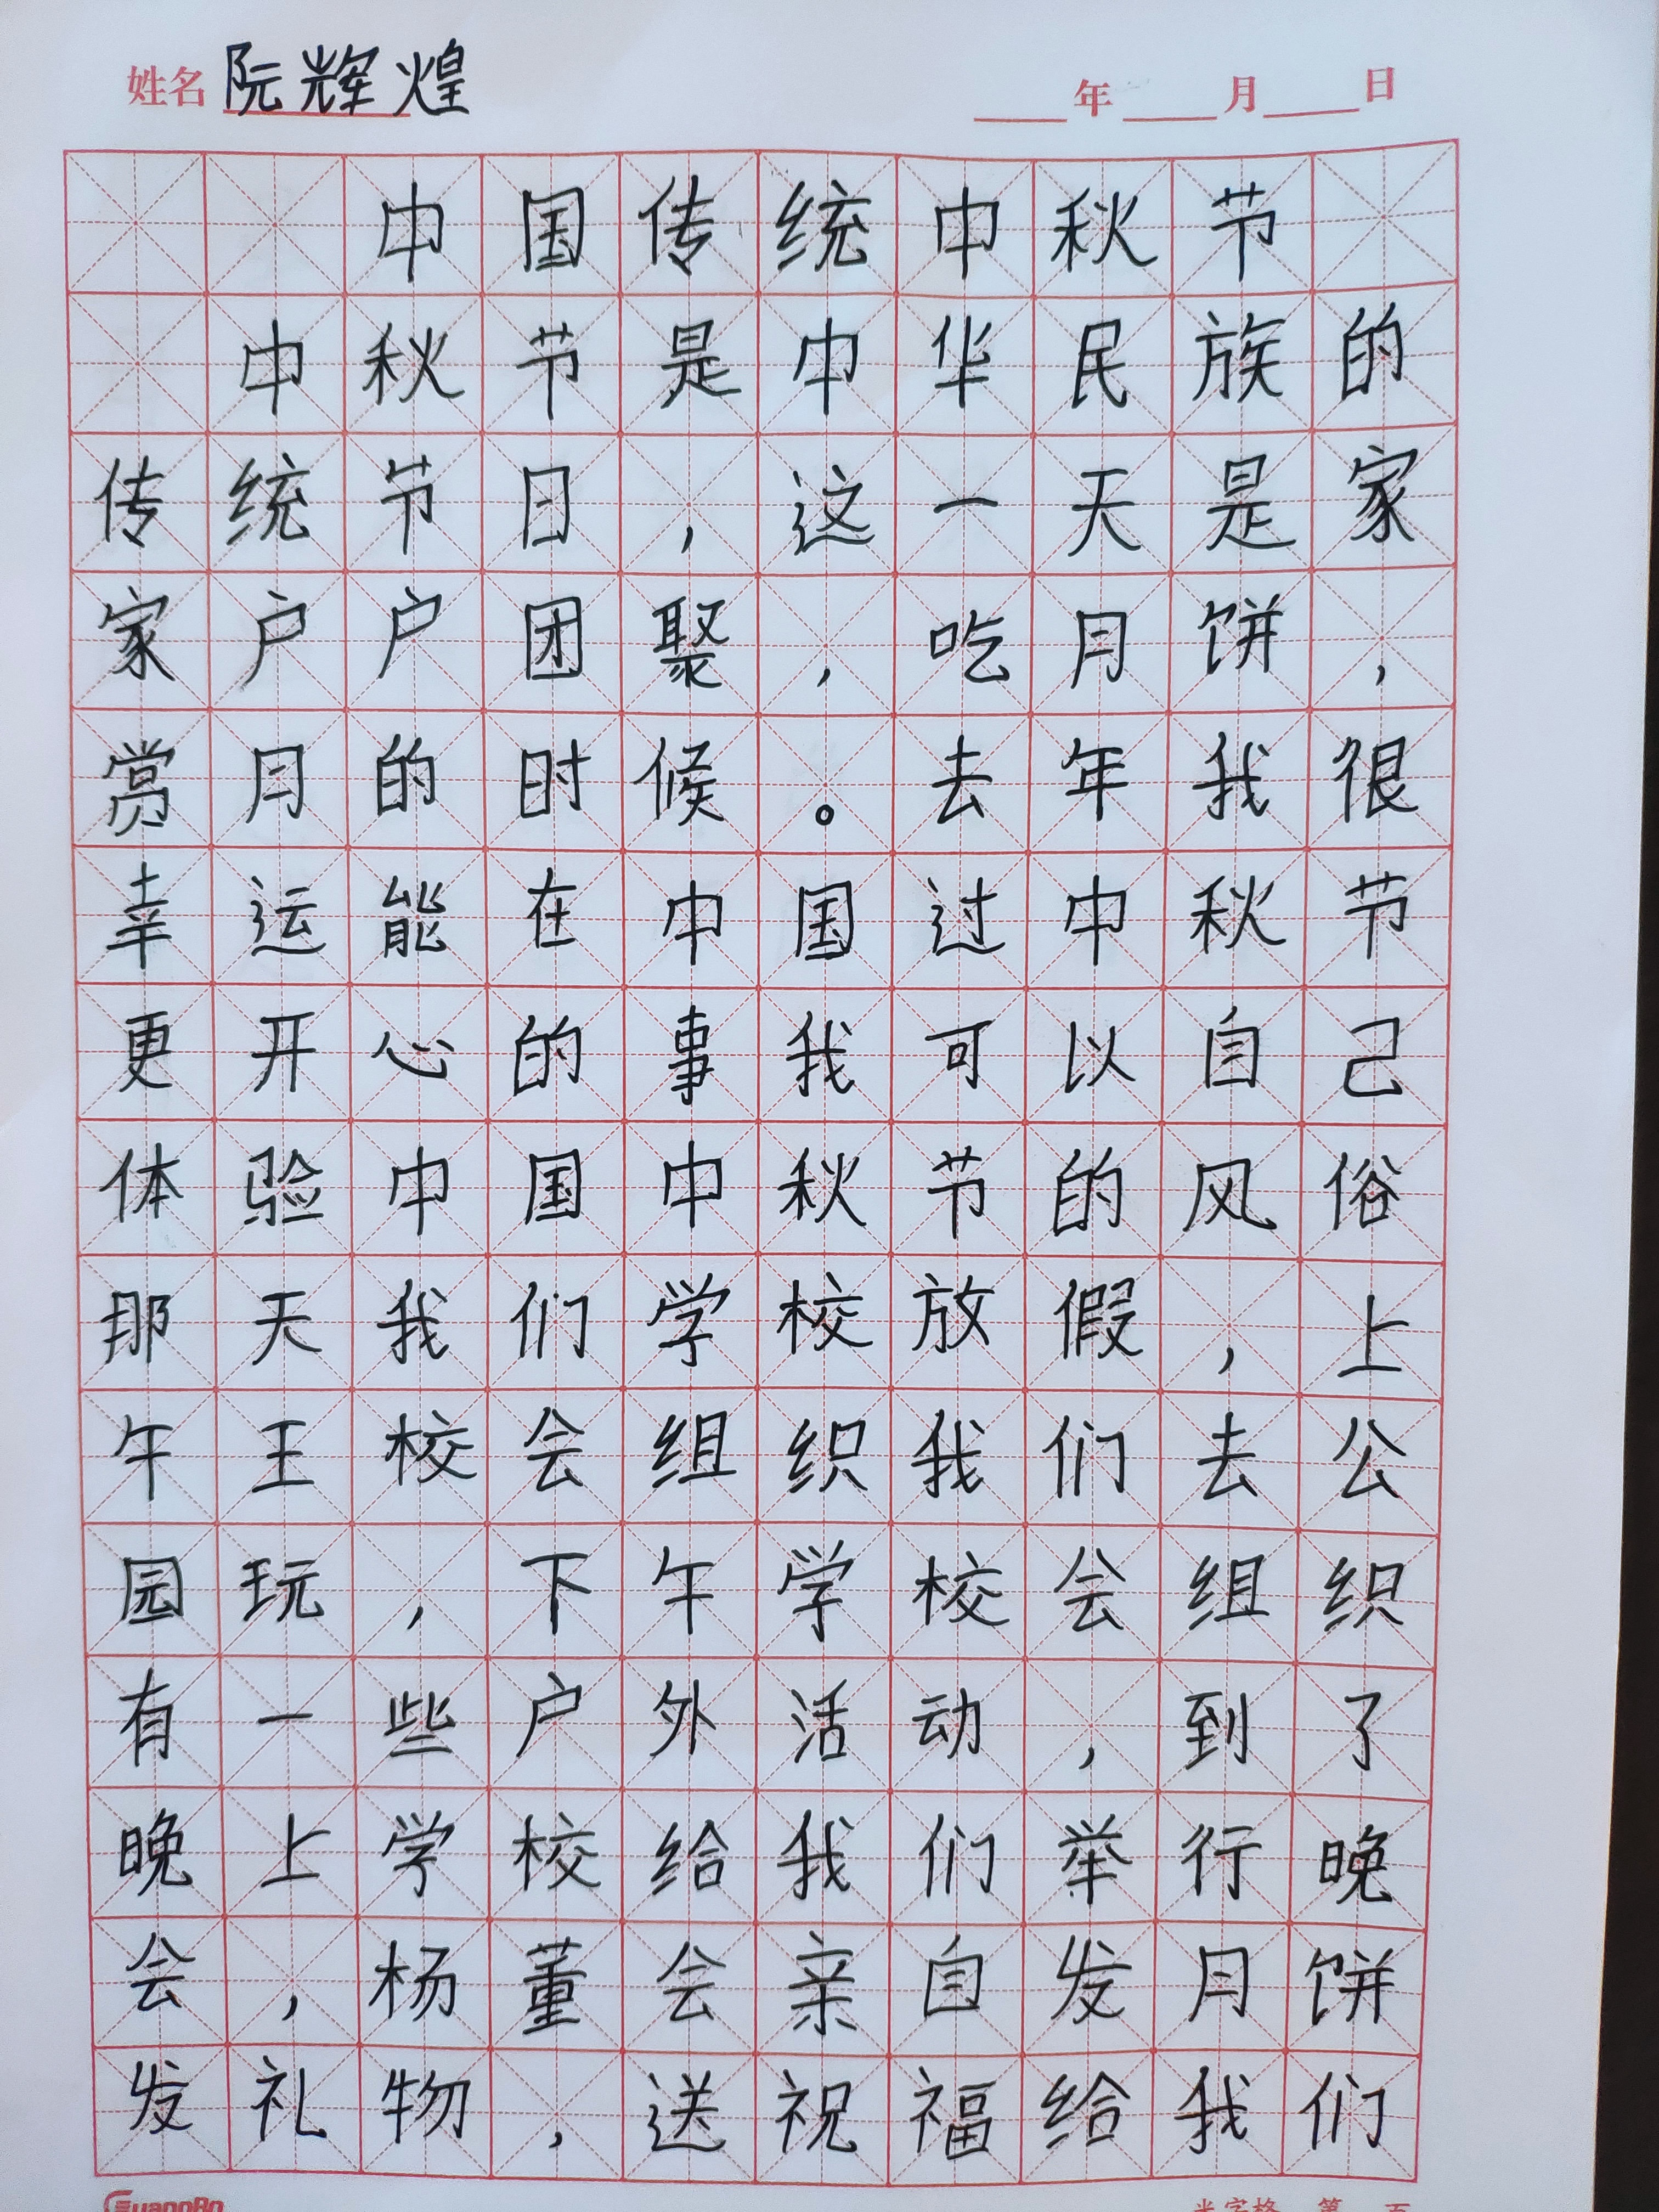 姓名 阮辉煌 年 月 日
中国传统中秋节
中秋节是中华民族的
传统节日，这一天是家
家户户团聚，吃月饼，
赏月的时候。去年我很
幸运能在中国过中秋节
更开心的事我可以自己
体验中国中秋节的风俗
那天我们学校放假，上
午王校会组织我们去公
园玩，下午学校会组织
有一些户外活动，到了
晚上学校给我们举行晚
会，杨董会亲自发月饼
发礼物，送祝福给我们
GuangBo 米字格 第 页